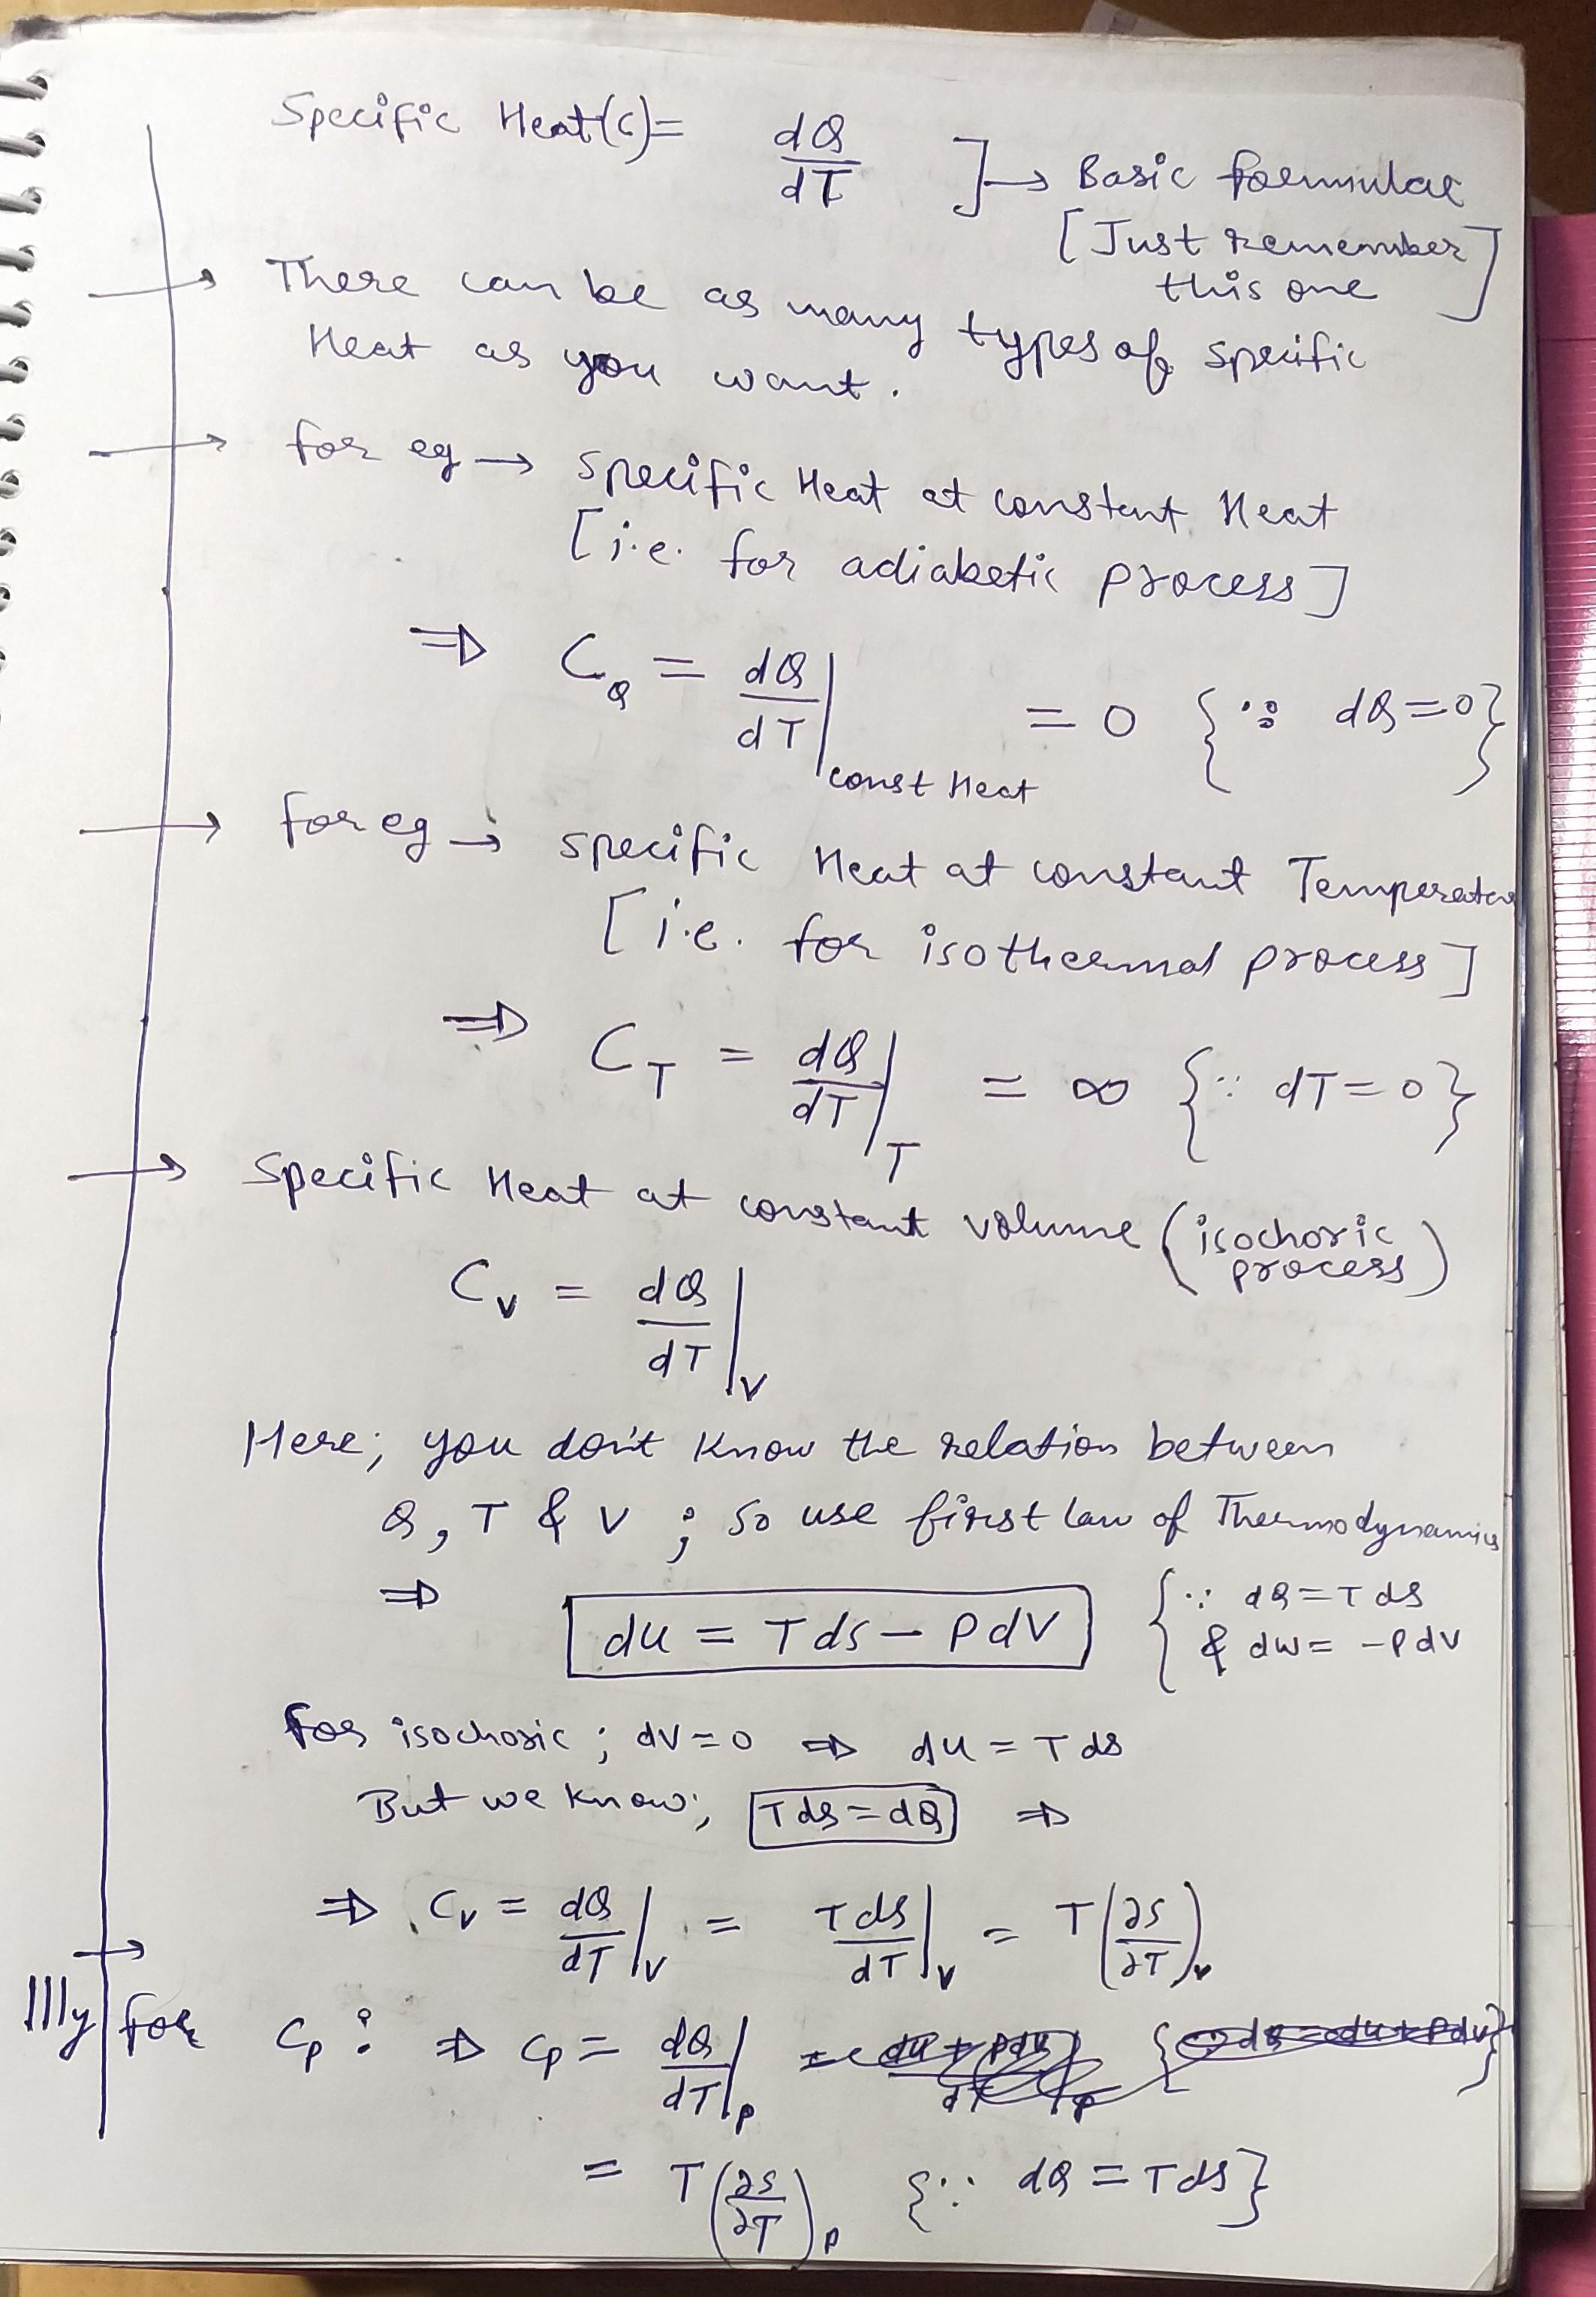 Specific Heat(C) = dQ/dT ]→ Basic formulae
[Just remember this one]
→ There can be as many types of specific
Heat as you want.
→ for eg → specific Heat at constant Heat
[i.e. for adiabetic process]
⇒ C_Q = dQ/dT |const Heat = 0 {∵ dQ=0}
→ for eg → specific Heat at constant Temperature
[i.e. for isothermal process]
⇒ C_T = dQ/dT |_T = ∞ {∵ dT=0}
→ Specific Heat at constant volume (isochoric process)
C_V = dQ/dT |_V
Here; you don't know the relation between
Q, T & V ; so use first law of Thermodynamics
⇒ dU = Tds − PdV {∵ dQ = Tds
& dW = −PdV
for isochoric ; dV=0 ⇒ dU = Tds
But we know; Tds = dQ ⇒
⇒ C_V = dQ/dT |_V = Tds/dT |_V = T(∂S/∂T)_V
→
Illy for C_P : ⇒ C_P = dQ/dT |_P
= T(∂S/∂T)_P {∵ dQ = Tds}